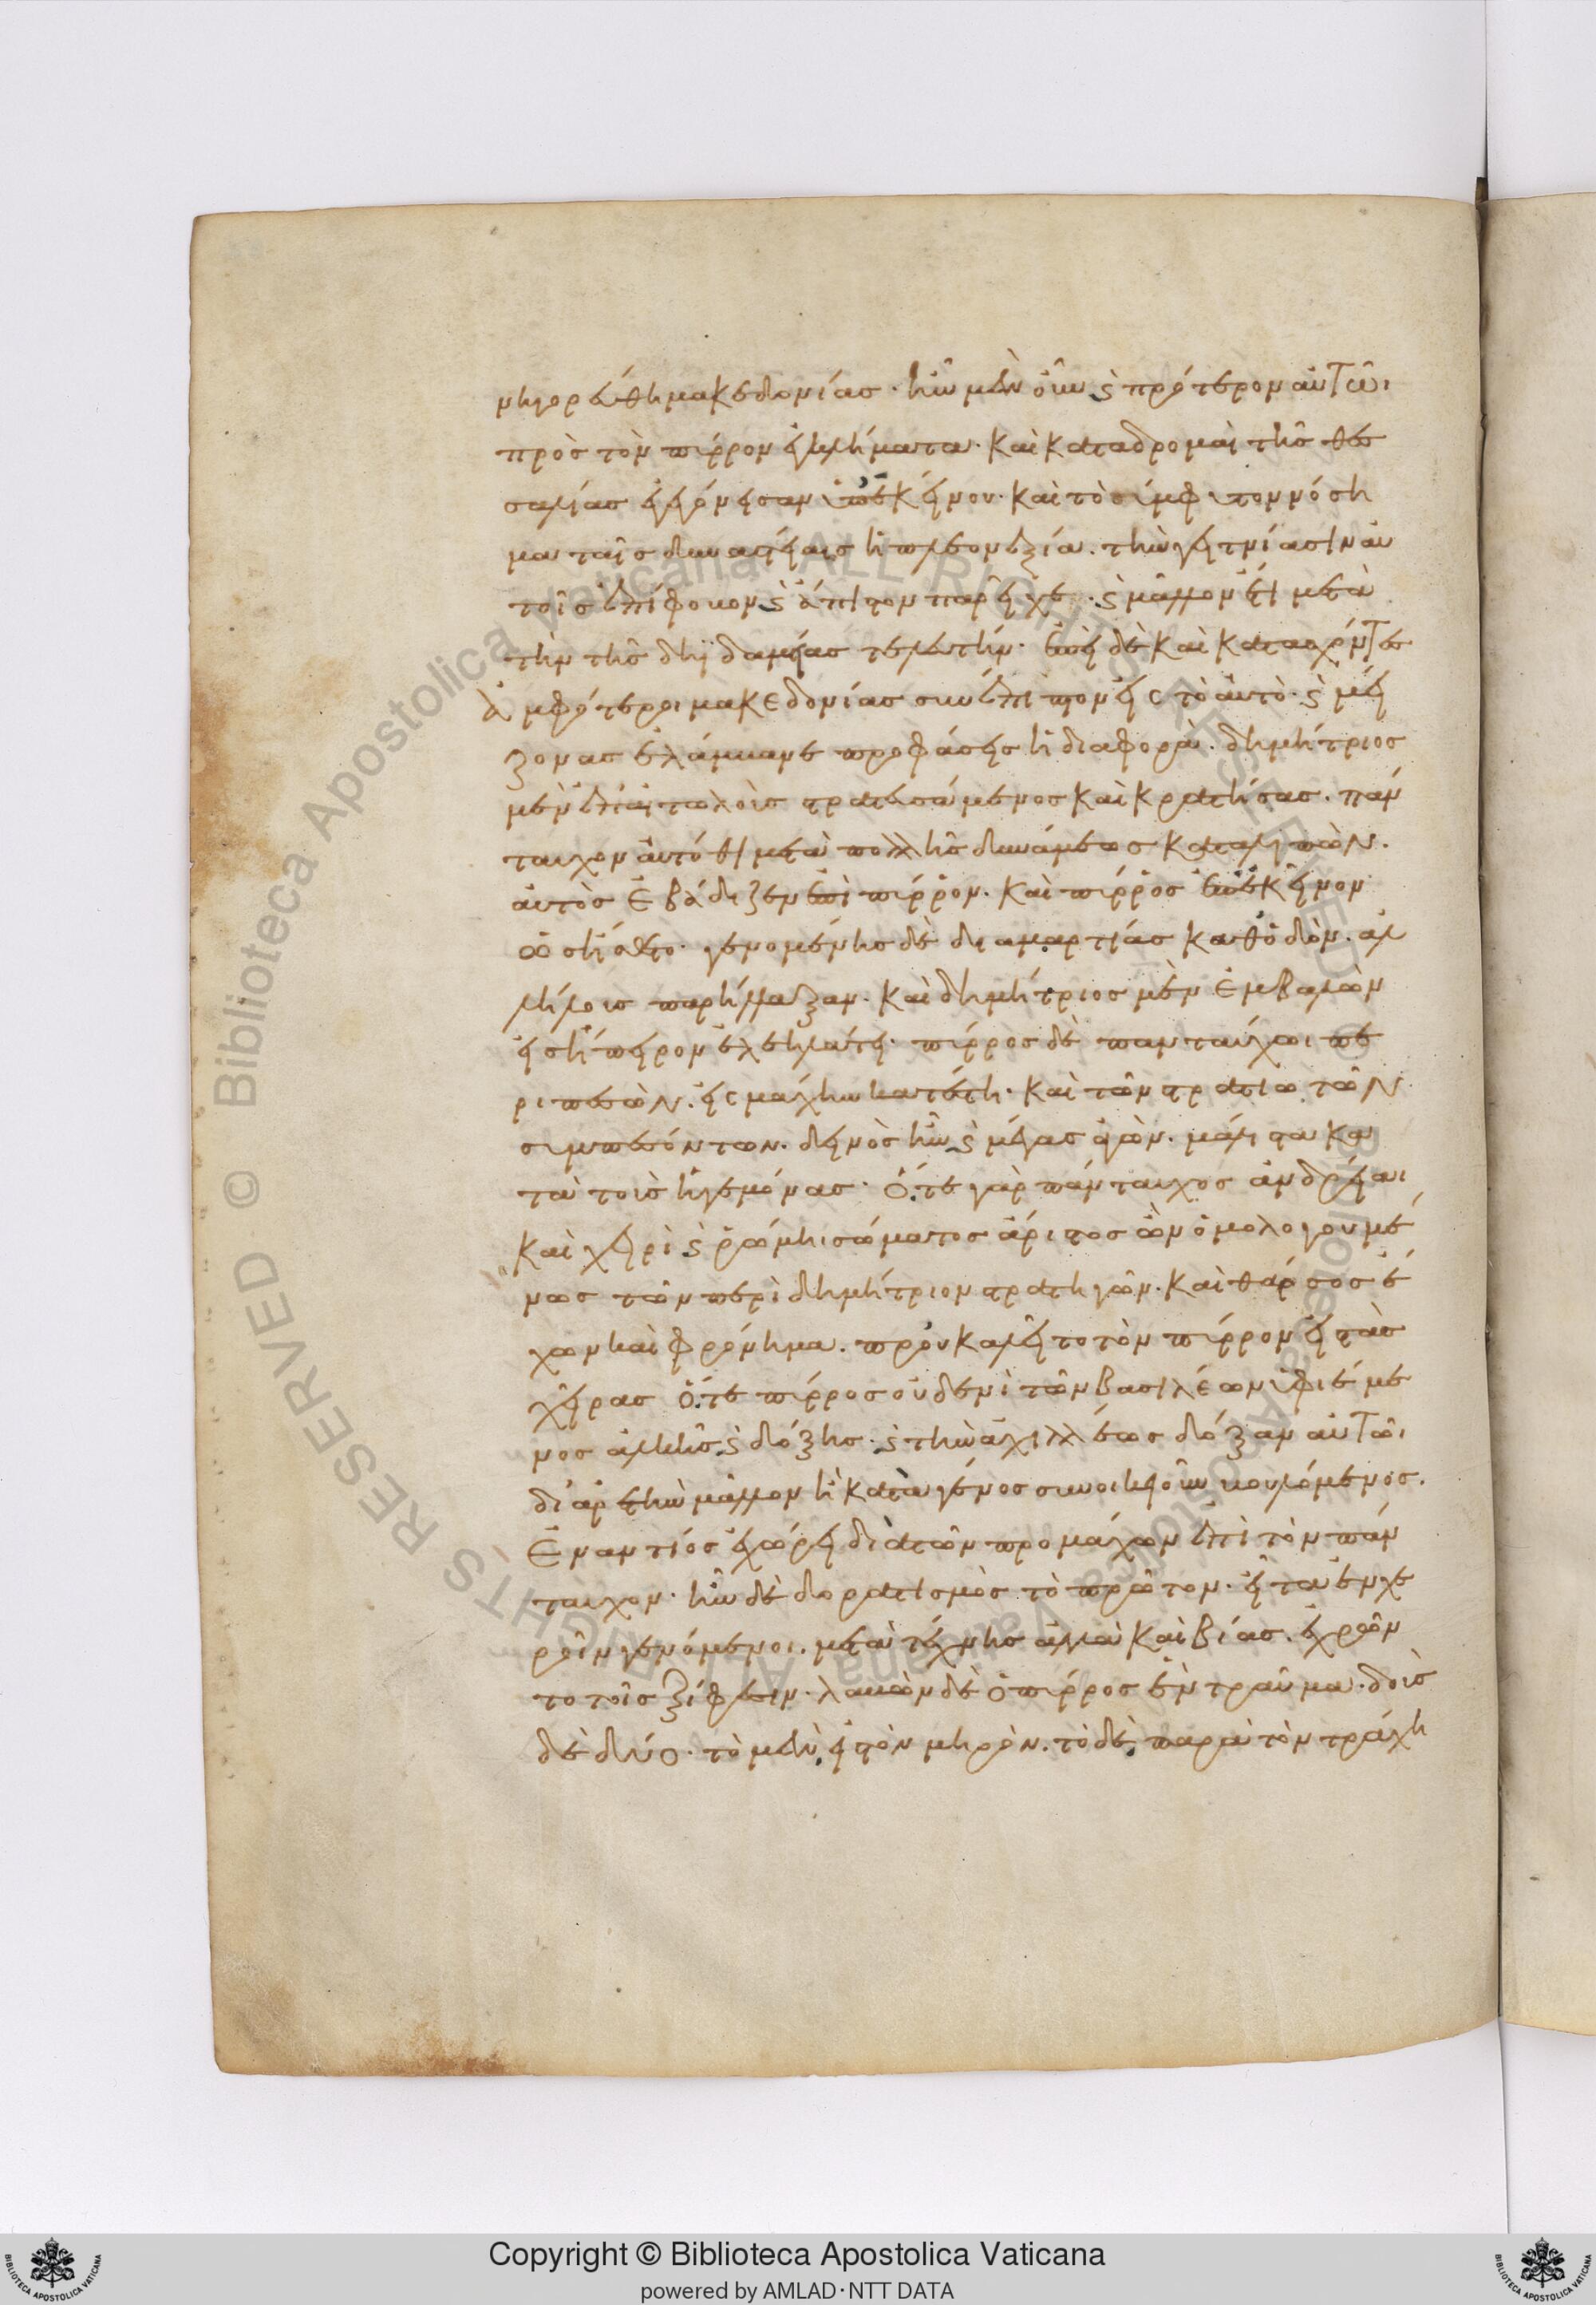 νηγορεύθη μακεδονίας· ἦν μὲν οὖν ϗ πρότερον αὐτῶι
πρὸς τὸν πύρρον ἐγκλήματα· καὶ καταδρομαὶ τῆς θεσ
σαλίας ἐγεγόνεισαν ὑπ' ἐκείνου· καὶ τὸ σύμφυτον νόση
μα ταῖς δυναστείαις ἡ πλεονεξία. τὴν γειτνίασιν αὐ
τοῖς ἐπίφοβον ϗ ἄπιστον παρεῖχε· ϗ μᾶλλον ἔτι μετὰ
τὴν τῆς δηϊδαμείας τελευτήν· ἐπεὶ δὲ καὶ κατασχόντες
ἀμφότεροι μακεδονίας συνέπιπτον εἰς τὸ αὐτὸ· ϗ μεί
ζονας ἐλάμβανε προφάσεις ἡ διαφορὰ· δημήτριος
μὲν ἐπ' αἰτωλοὺς στρατευσάμενος καὶ κρατήσας. πάν
ταυχον αὐτόθι μετὰ πολλῆς δυνάμεως καταλιπὼν.
αὐτὸς ἐβάδιζεν ἐπὶ πύρρον. καὶ πύρρος ἐπ' ἐκεῖνον
ὡς ἤσθετο· γενομένης δὲ διαμαρτίας καθ' ὁδὸν. ἀλ
λήλους παρήλλαξαν. καὶ δημήτριος μὲν ἐμβαλὼν
εἰς ἤπειρον ἐλεηλάτει· πύρρος δὲ πανταύχωι πε
ριπεσὼν. εἰς μάχην κατέστη· καὶ τῶν στρατιωτῶν
συμπεσόντων. δεινὸς ἦν ϗ μέγας ἀγὼν. μάλιστα κα
τὰ τοὺς ἡγεμόνας· ὅ,τε γὰρ πάνταυχος ἀνδρείαι
καὶ χειρὶ ϗ ῥώμηι σώματος ἄριστος ὢν ὁμολογουμέ
νως τῶν περὶ δημήτριον στρατηγῶν. καὶ θάρσος ἔ
χων καὶ φρόνημα. προὐκαλεῖτο τὸν πύρρον εἰς τὰς
χεῖρας ὅ,τε πύρρος οὐδενὶ τῶν βασιλέων ὑφιέμε
νος ἀλκῆς ϗ δόξης· ϗ τὴν ἀχιλλέως δόξαν αὐτῶι
δι' ἀρετὴν μᾶλλον ἢ κατὰ γένος συνοικειοῦν βουλόμενος.
ἐναντίος ἐχώρει διὰ τῶν προμάχων ἐπὶ τὸν πάν
ταυχον· ἦν δὲ δορατισμὸς τὸ πρῶτον· εἶτα ἐν χε
ροῖν γενόμενοι. μετὰ τέχνης ἅμα καὶ βίας. ἐχρῶν
το τοῖς ξίφεσιν· λαβὼν δὲ ὁ πύρρος ἓν τραῦμα. δοὺς
δὲ δύο· τὸ μὲν, εἰς τὸν μηρὸν. τὸ δὲ, παρὰ τὸν τράχη